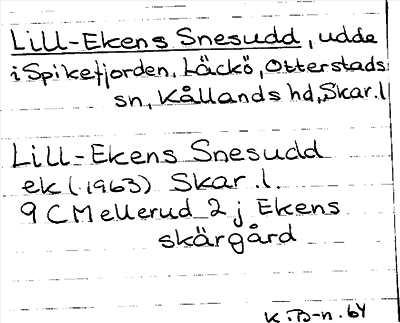 Lill-Ekens Snesudd, udde
i Spikefjorden, Läckö, Otterstads
sn, Kållands hd, Skar.l
Lill-Ekens Snesudd
ek (1963) Skar.l.
9 C Mellerud 2 j Ekens
skärgård
K.B-n. 64